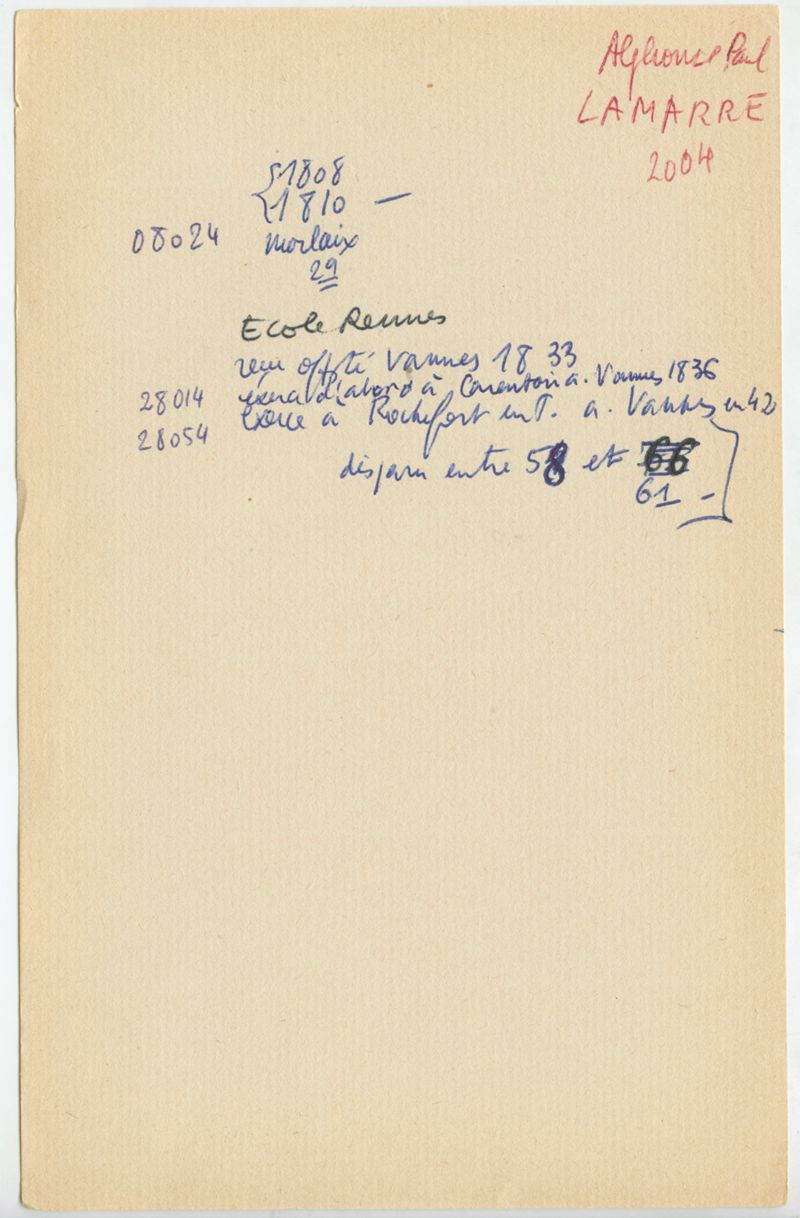 Alphonse Paul
LAMARRE
2004
{1808
{1810 —
08024 Morlaix
29
Ecole Rennes
reçu offté Vannes 18 33
28014 exerce d'abord à Carentoir a. Vannes 1836
28054 exerce à Rochefort en T. a. Vannes en 42
disparu entre 58 et 66
61 -